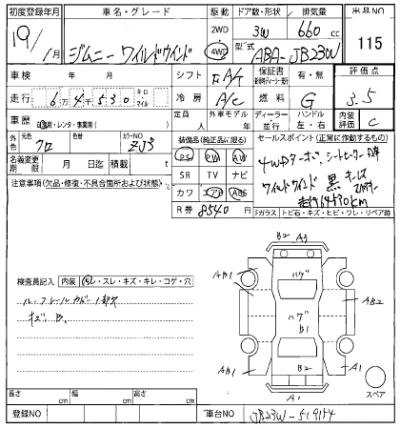 初度登録年月 車名・グレード 駆動 ドア数・形状 排気量 出品NO
19/ 1月 ジムニー ワイルドウインド 2WD 4WD 3W 660cc 115
型式 ABA-JB23W
車検 年 月 シフト FA/T 保証書 有・無 評価点
走行 6万4千530 キロ マイル 冷房 A/C 燃料 G 3.5
車歴 自家用・レンタ・事業用( ) 定員 人 外車モデル 年 ディーラー 並行 ハンドル 左・右 内装評価 C
外色 元色 クロ カラーNO ZJ3 装備品(純正品に限る) セールスポイント(正常に作動するもの)
名義変更期限 月 日迄 積載 t PS PW AW 4WDターボ、シートヒーター
SR TV ナビ ワイルドウインド 黒 キーレス
注意事項(欠品・修復・不具合箇所および状態) カワ エアB ABS 走行64530km
R券 8540円 Fガラス トビ石・キズ・ヒビ・ワレ・リペア跡
B2 A3
AB1 ハゲ A1
検査員記入 内装 ・スレ・キズ・キレ・コゲ・穴
ルーフレールカバー1部欠 ハゲ B1 AB2
キズ B.
AB1 B2 A1
A1 スペア
長さ cm 幅 cm 高さ cm
登録NO 車台NO JB23W-519154